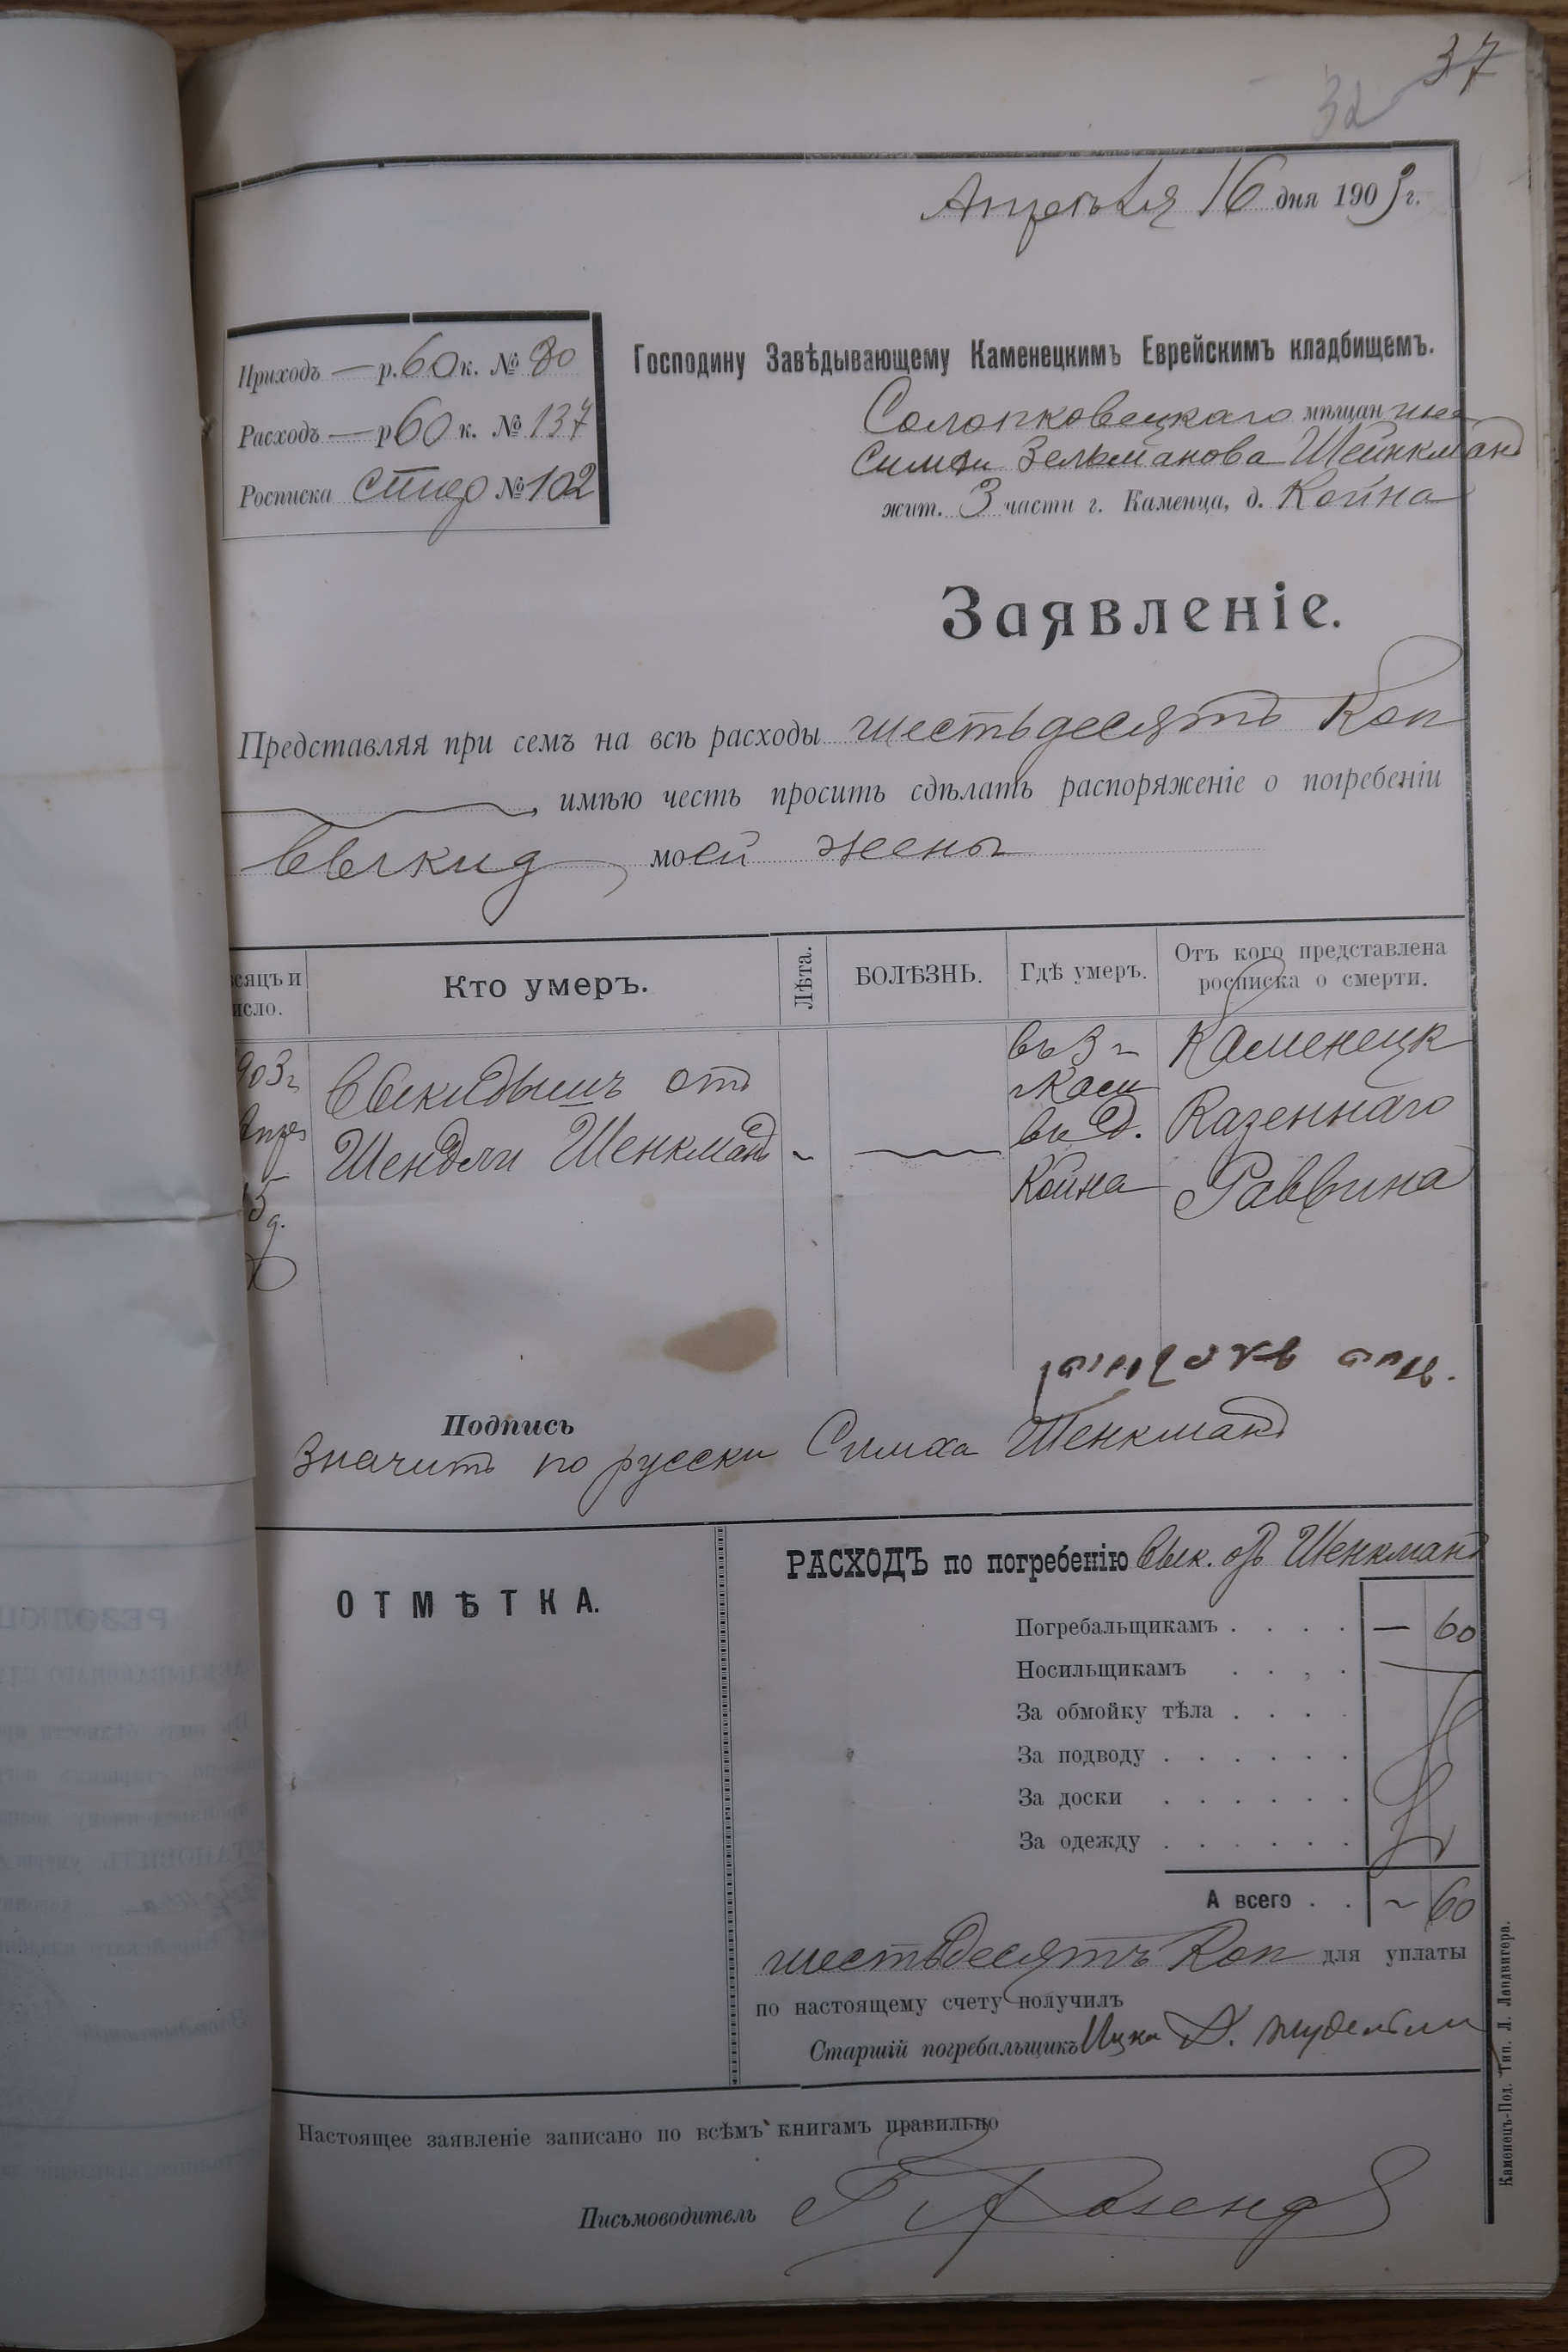 37
32
Апреля 16 дня 1903 г.
Приходъ — р. 60 к. № 80
Расходъ — р 60 к. № 137
Росписка № 102
Господину Завѣдывающему Каменецкимъ Еврейскимъ кладбищемъ.
Солопковецкаго мѣщанина
Симхи Зельманова Шейнкманъ
жит. 3 части г. Каменца, д. Койна
Заявленіе.
Представляя при семъ на всѣ расходы шестьдесятъ Коп
, имѣю честь просить сдѣлать распоряженіе о погребеніи
выкид моей жены
сяцъ и
исло.
Кто умеръ.
Лѣта.
БОЛѢЗНЬ.
Гдѣ умеръ.
Отъ кого представлена
росписка о смерти.
903 г
Апре
15
д.
Выкидышъ отъ
Шендли Шенкманъ
въ 3 ч
г Каме
въ д.
Койна
Каменецк
Казеннаго
Раввина
Подпись
Значитъ по русски Симха Шенкманъ
ОТМѢТКА.
РАСХОДЪ по погребенію Вык. отъ Шенкманъ
Погребальщикамъ . . . . — 60
Носильщикамъ . . , .
За обмойку тѣла . . . .
За подводу . . . . . .
За доски . . . . . .
За одежду . . . . . .
А всего . . ~ 60
шестьдесятъ Коп для уплаты
по настоящему счету получилъ
Старшій погребальщикъ Ицко
Настоящее заявленіе записано по всѣмъ книгамъ правильно
Письмоводитель
Каменецъ-Под. Тип. Л. Ландвигера.